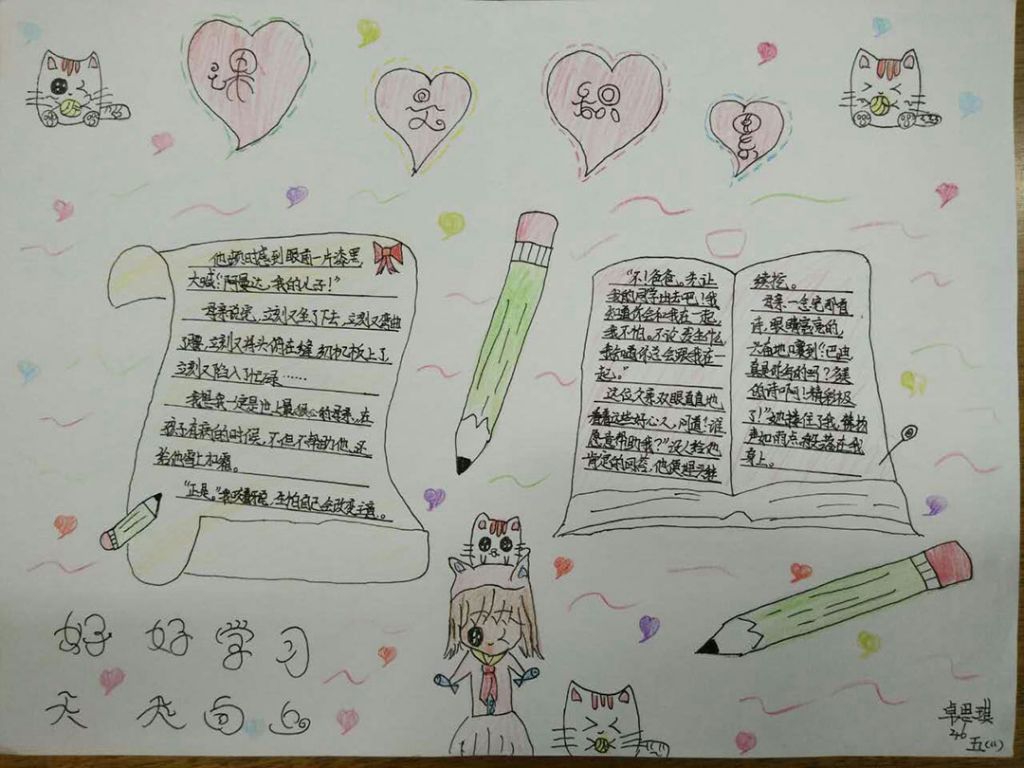 课 文 积 累
他顿时感到眼前一片漆黑,
大喊:“阿曼达,我的儿子!”
母亲说完,立刻又坐了下去,立刻又弯曲
了背,立刻又将头俯在缝纫机板上了,
立刻又陷入了忙碌……
我想我一定是世上最狠心的母亲,在
孩子有病的时候,不但不帮助他,还
给他雪上加霜。
“正是。”我咬着牙说,生怕自己会改变主意。
“不!爸爸。先让
我的同学出去吧!我
知道你会和我在一起,
我不怕。不论发生什么,
我知道你总会跟我在一
起。”
这位父亲双眼直直地
看着这些好心人,问道:“谁
愿意帮助我?”没人给他
肯定的回答,他便埋头接
续挖。
母亲一念完那首
诗,眼睛亮亮的,
兴奋地嚷到:“巴迪,
真是你写的吗?多美
的诗啊!精彩极
了!”她搂住了我,赞扬
声如雨点般落在我
身上。
好好学习
天天向上
卓思琪
46
五(1)